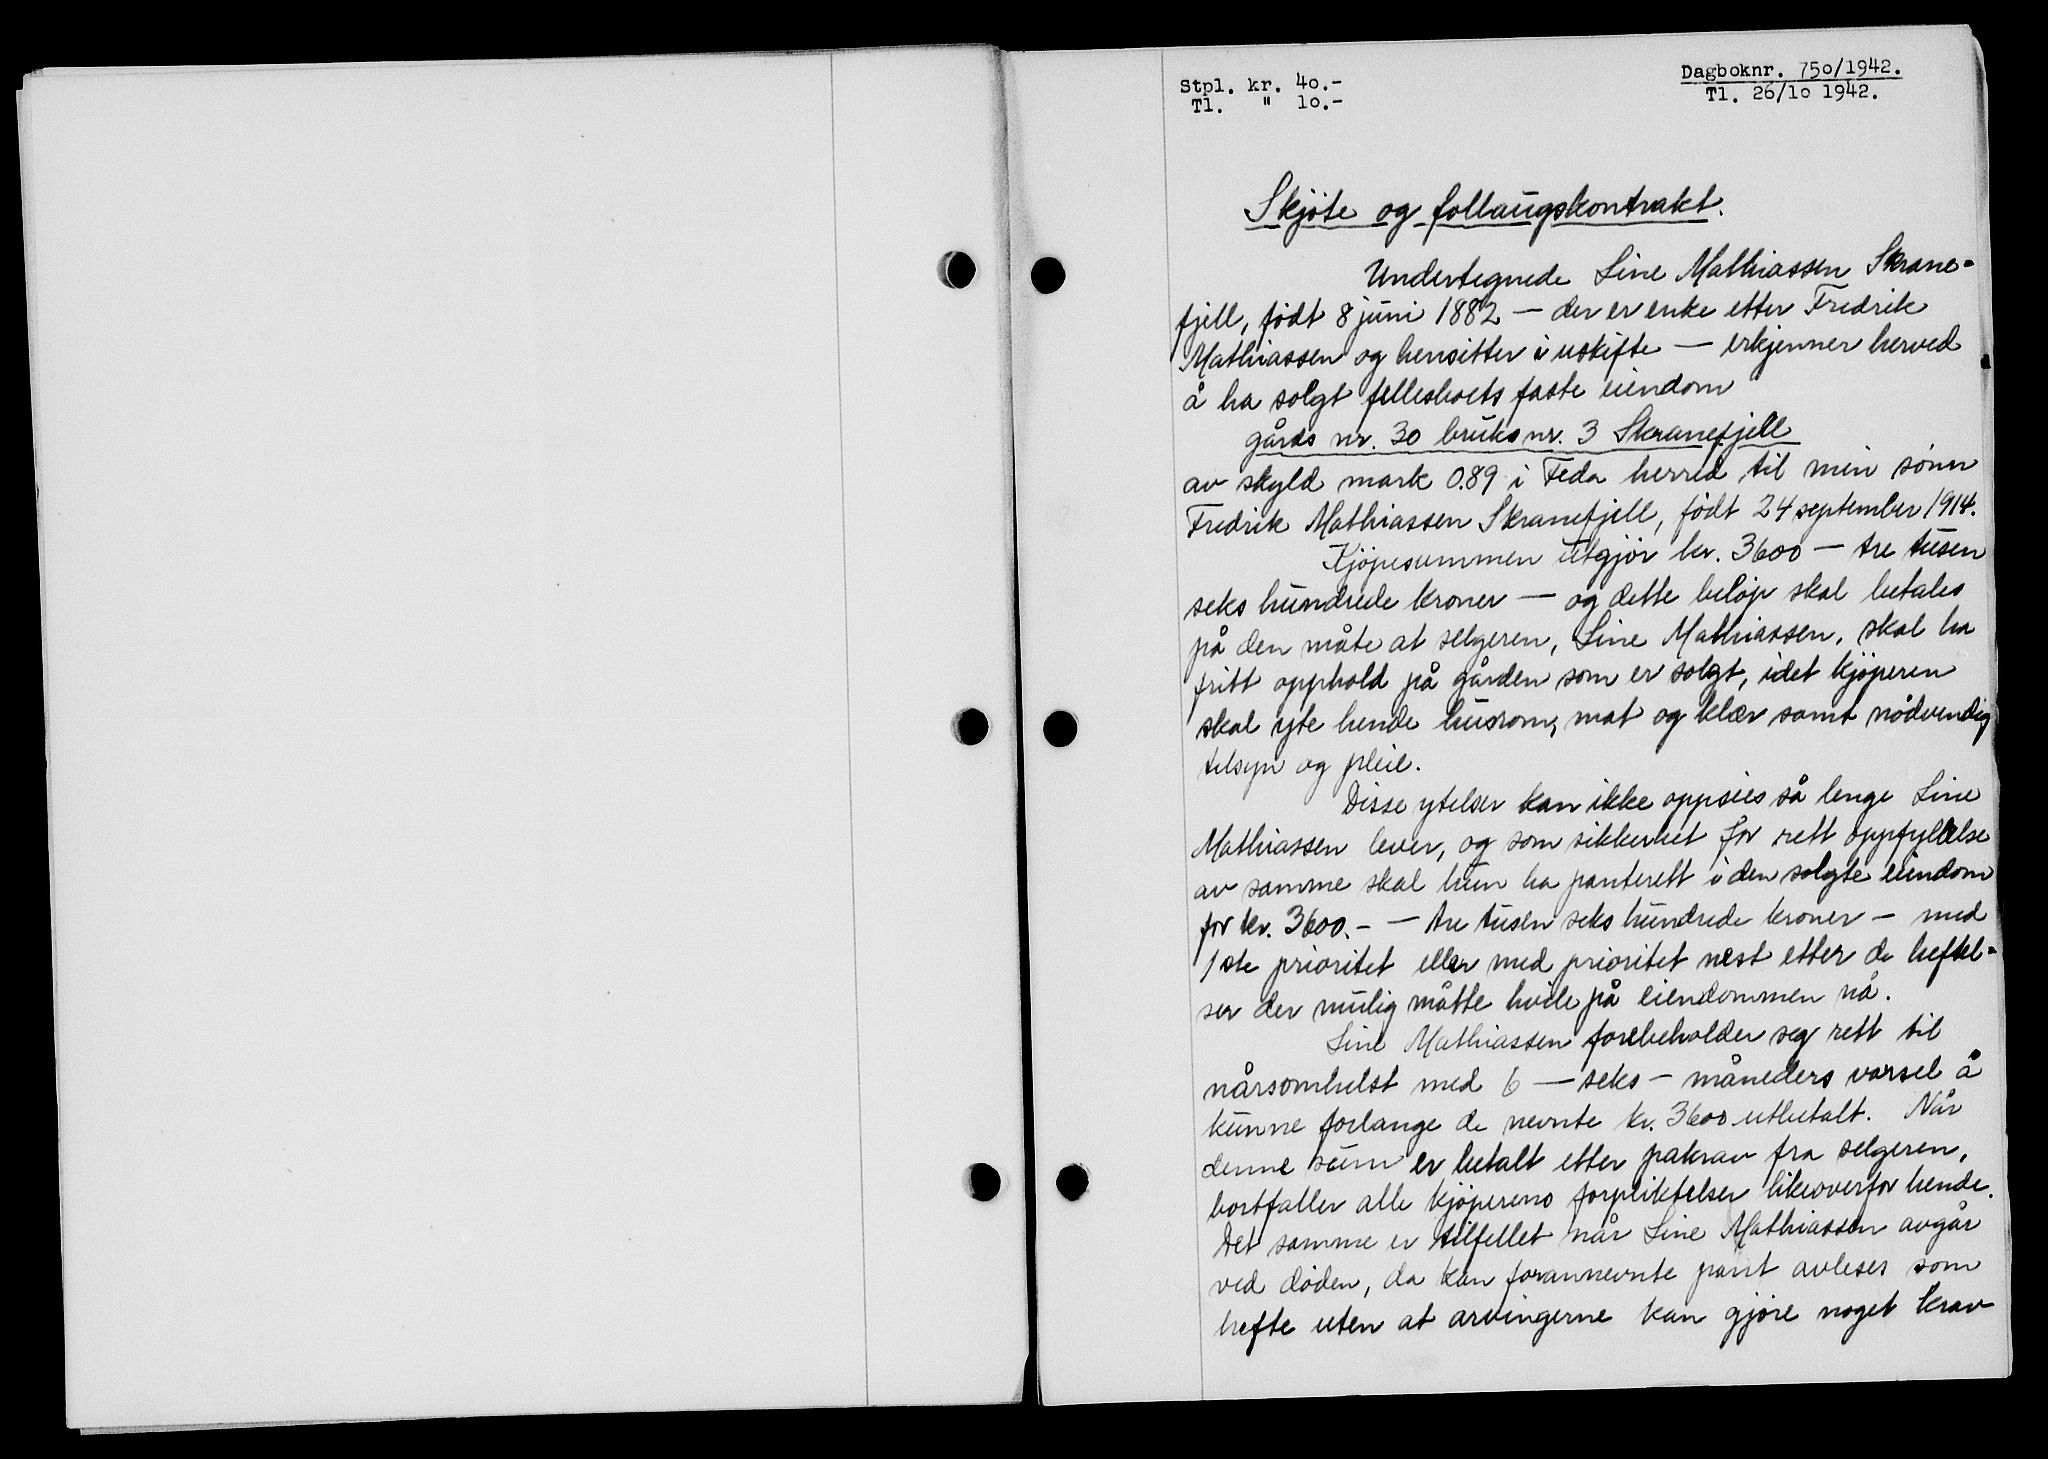 Stpl. kr. 40.-
Tl. " 10.-
Dagboknr. 750/1942.
Tl. 26/10 1942.
Skjöte og follaugskontrakt.
Undertegnede Line Mathiassen Skrane=
fjell, født 8 juni 1882 — der er enke etter Fredrik
Mathiassen og hensitter i uskifte — erkjenner herved
å ha solgt felleshoets faste eiendom
gårds nr. 30 bruks nr. 3 Skranefjell
av skyld mark 0.89 i Feda herred til min sönn
Fredrik Mathiassen Skranefjell, födt 24 september 1914.
Kjöpesummen utgjör kr. 3600 — tre tusen
seks hundrede kroner — og dette belöp skal betales
på den måte at selgeren, Line Mathiassen, skal ha
fritt opphold på gården som er solgt, idet kjöperen
skal yte hende husrom, mat og klær samt nödvendig
tilsyn og pleie.
Disse ytelser kan ikke oppsies så lenge Line
Mathiassen lever, og som sikkerhet for rett oppfyllelse
av samme skal hun ha panterett i den solgte eiendom
for kr. 3600.- — tre tusen seks hundrede kroner — med
1ste prioritet eller med prioritet nest etter de heftel=
ser der mulig måtte hvile på eiendommen nå.
Line Mathiassen forebeholder seg rett til
nårsomhelst med 6 — seks — måneders varsel å
kunne forlange de nevnte kr. 3600 utbetalt. Når
denne sum er betalt etter påkrav fra selgeren,
bortfaller alle kjöperens forpliktelser likeoverfor hende.
Det samme er tilfellet når Line Mathiassen avgår
ved döden, da kan forannevnte pant avleses som
hefte uten at arvingerne kan gjöre noget krav